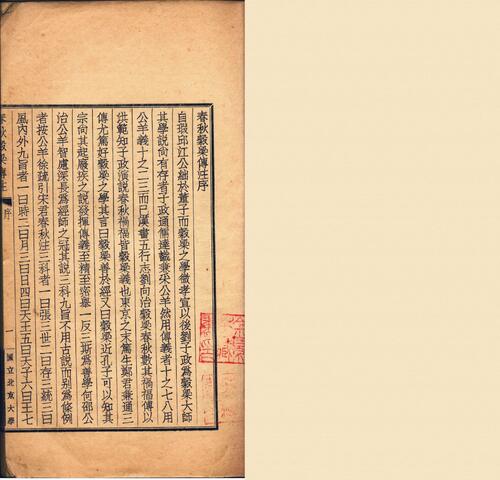 春秋穀梁傳注序
自瑕邱江公絀於董子而穀梁之學微孝宣以後劉子政爲穀梁大師
其學說尙有存者子政通儒達識兼采公羊然用傳義者十之七八用
公羊義十之二三而已漢書五行志劉向治穀梁春秋數其禍福傳以
洪範知子政演說春秋禍福皆穀梁義也東京之末篤生鄭君兼通三
傳尤篤好穀梁之學其言曰穀梁善於經又曰穀梁近孔子可以知其
宗向其起廢疾之說發揮傳義至精至密舉一反三斯爲善學何邵公
治公羊智慮深長爲經師之冠其說三科九旨不用古說而別爲條例
者按公羊徐疏引宋君春秋注三科者一曰張三世二曰存三統三曰
異內外九旨者一曰時二曰月三曰日四曰天王五曰天子六曰王七
春秋穀梁傳注 序 一 國立北京大學